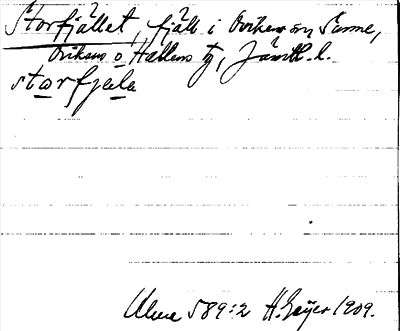 Storfjället, fjäll i Ovikens o Sunne,
Ovikens o Hallens tg, Jämtl. l.
storfjælə
Ulma 589:2 H. Geijer 1909.